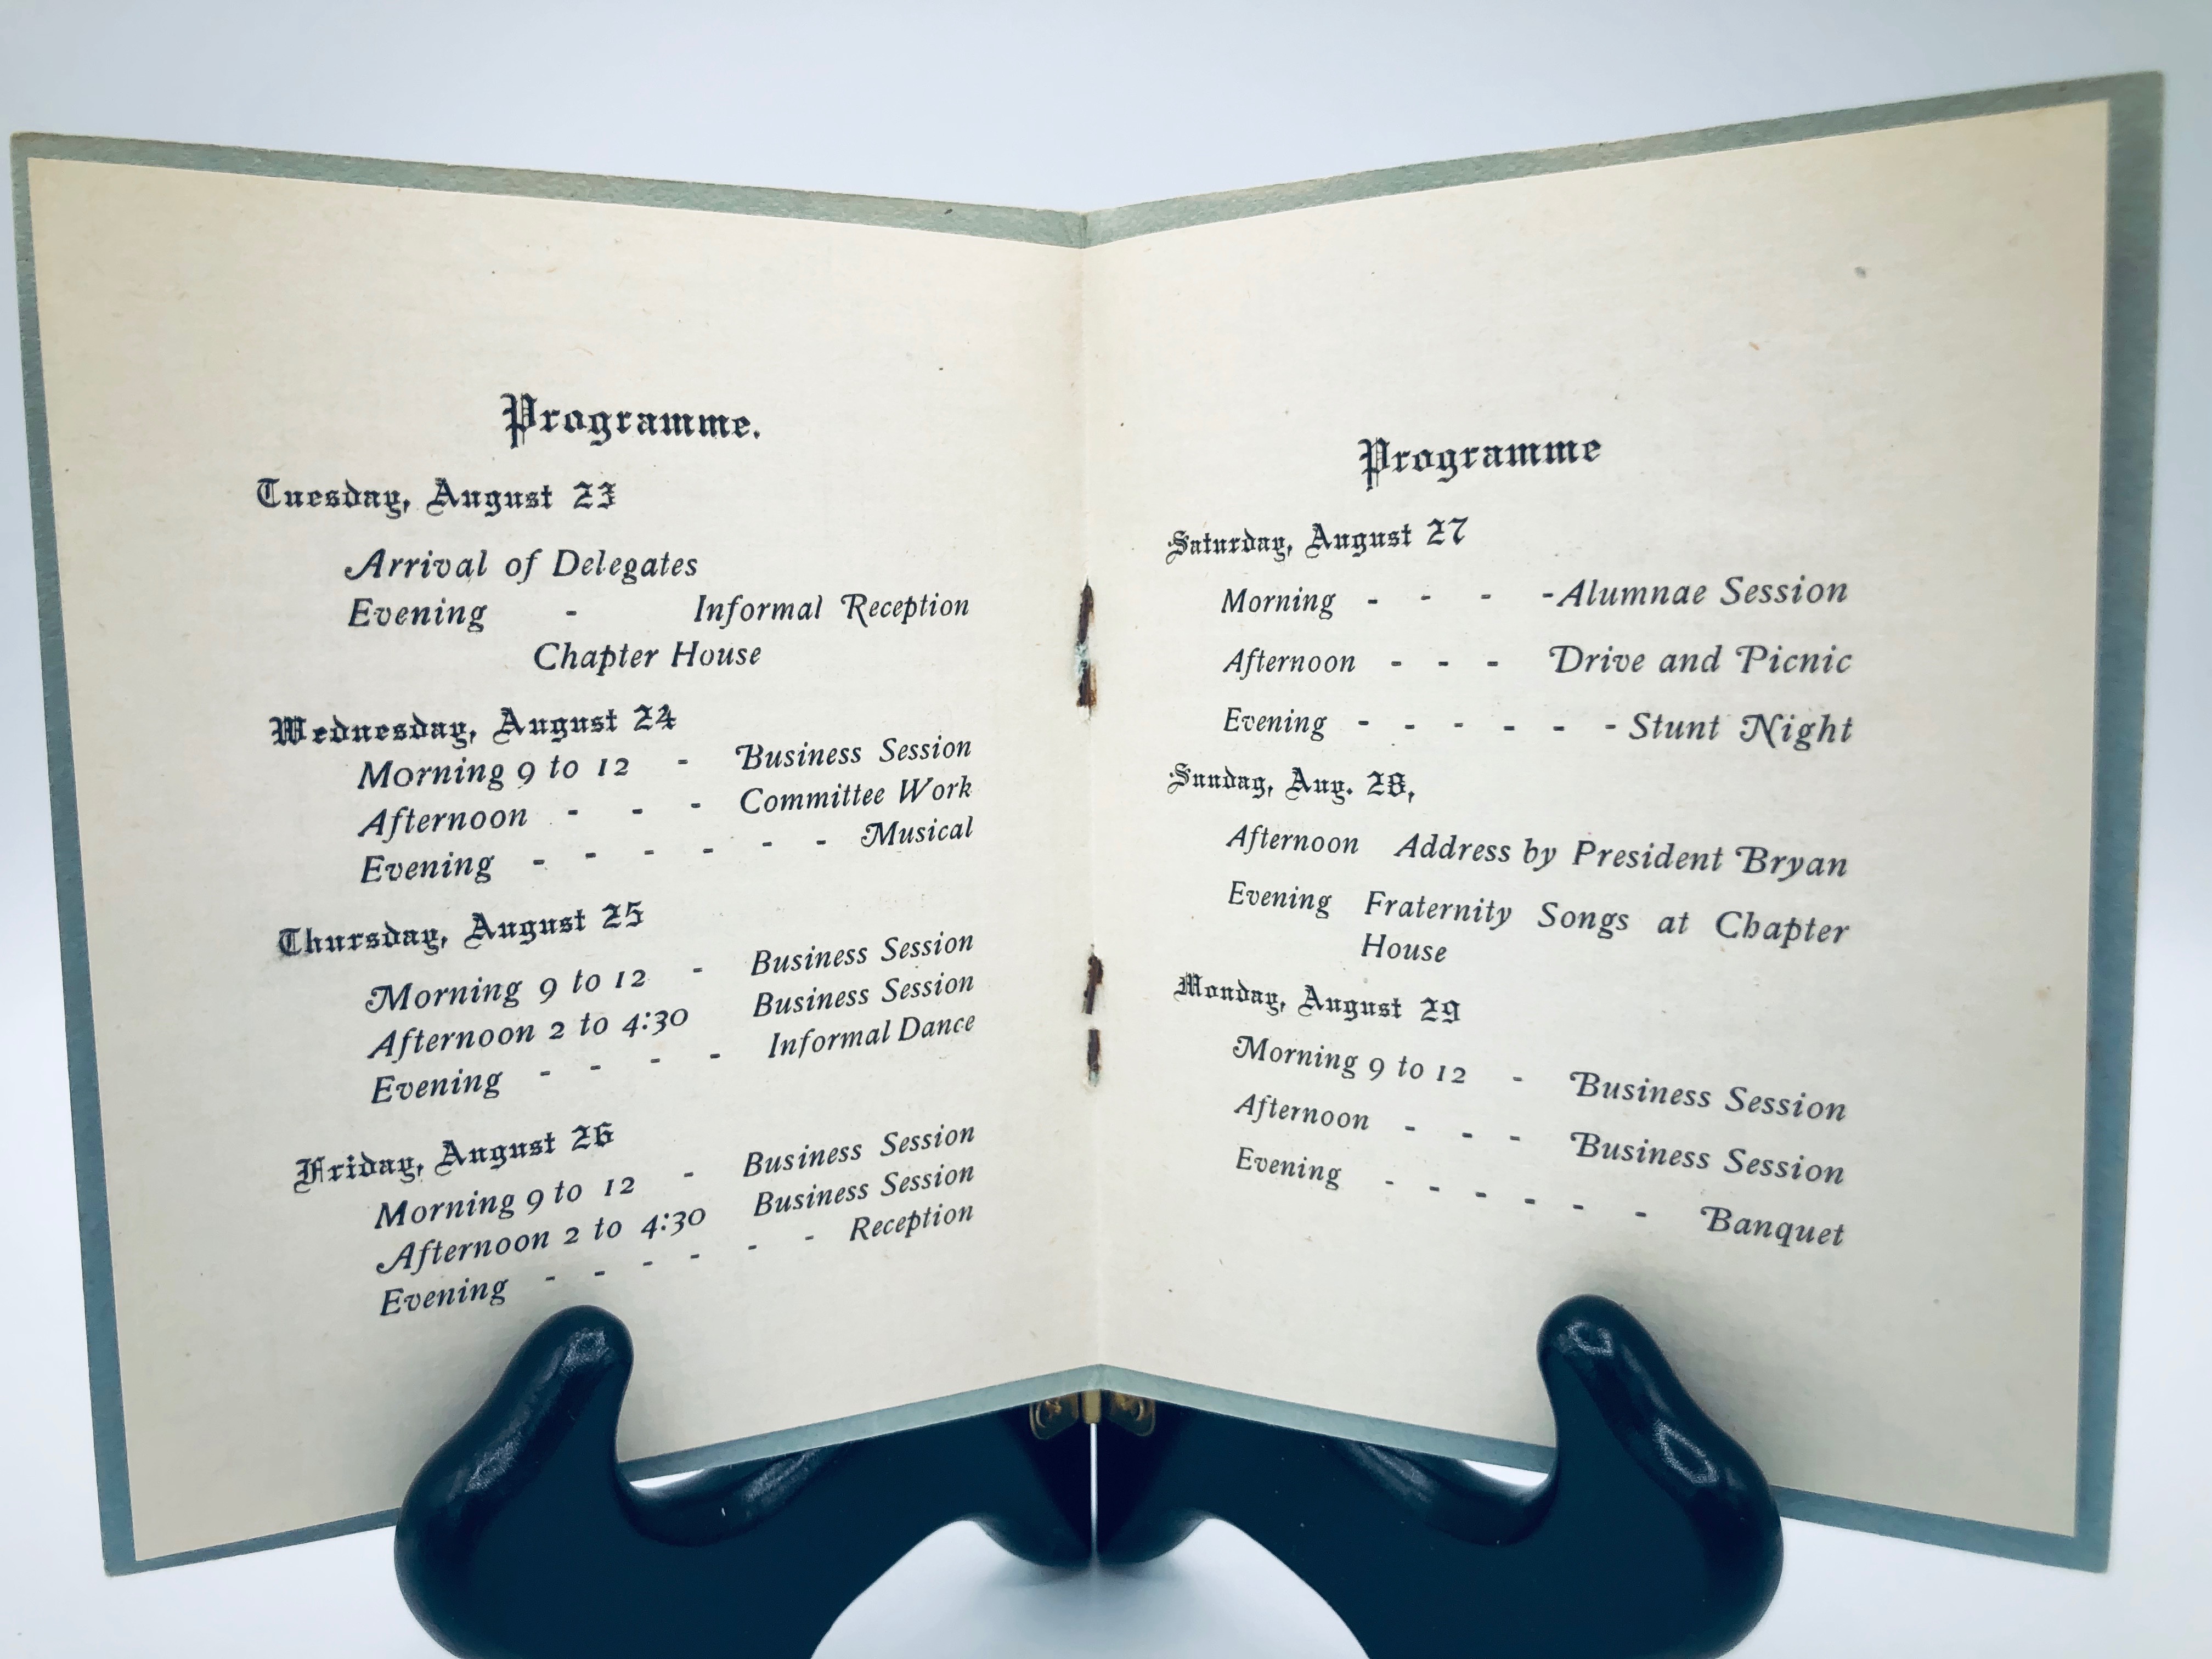 Programme.
Tuesday, August 23
Arrival of Delegates
Evening - Informal Reception
Chapter House
Wednesday, August 24
Morning 9 to 12 - Business Session
Afternoon - - - Committee Work
Evening - - - - - - Musical
Thursday, August 25
Morning 9 to 12 - Business Session
Afternoon 2 to 4:30 Business Session
Evening - - - - Informal Dance
Friday, August 26
Morning 9 to 12 - Business Session
Afternoon 2 to 4:30 Business Session
Evening - - - - - - Reception
Programme
Saturday, August 27
Morning - - - -Alumnae Session
Afternoon - - - Drive and Picnic
Evening - - - - - -Stunt Night
Sunday, Aug. 28,
Afternoon Address by President Bryan
Evening Fraternity Songs at Chapter
House
Monday, August 29
Morning 9 to 12 - Business Session
Afternoon - - - Business Session
Evening - - - - - - Banquet